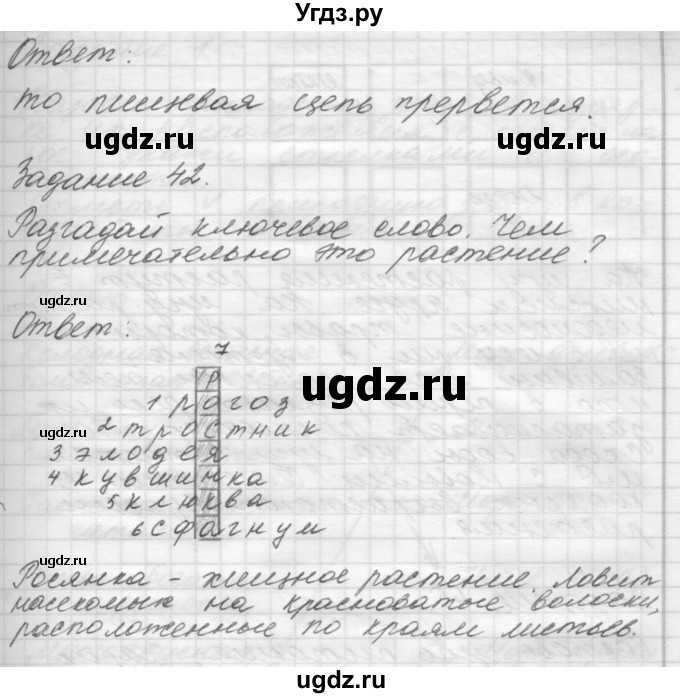 Угдз.ру
Ответ:
то пищевая цепь прервется.
ugdz.ru ugdz.ru
Задание 42.
Разгадай ключевое слово. Чем
примечательно это растение?
ugdz.ru
Ответ:
7
Р
ugdz.ru
1 рогоз
2 тростник
ugdz.ru
3 элодея
4 кувшинка
5 клюква
6 сфагнум
ugdz.ru ugdz.ru
Росянка - хищное растение. Ловит
насекомых на красноватые волоски,
расположенные по краям листьев.